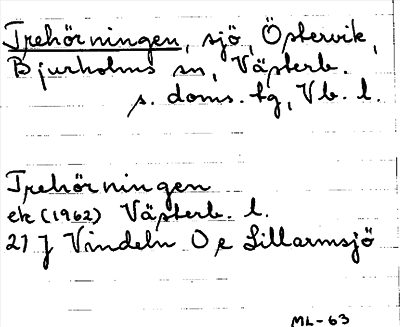 Trehörningen, sjö, Östervik,
Bjurholms sn, Västerb.
s. doms. tg, Vb. l.
Trehörningen
ek (1962) Västerb. l.
21 J Vindeln O e Lillarmsjö
ML-63